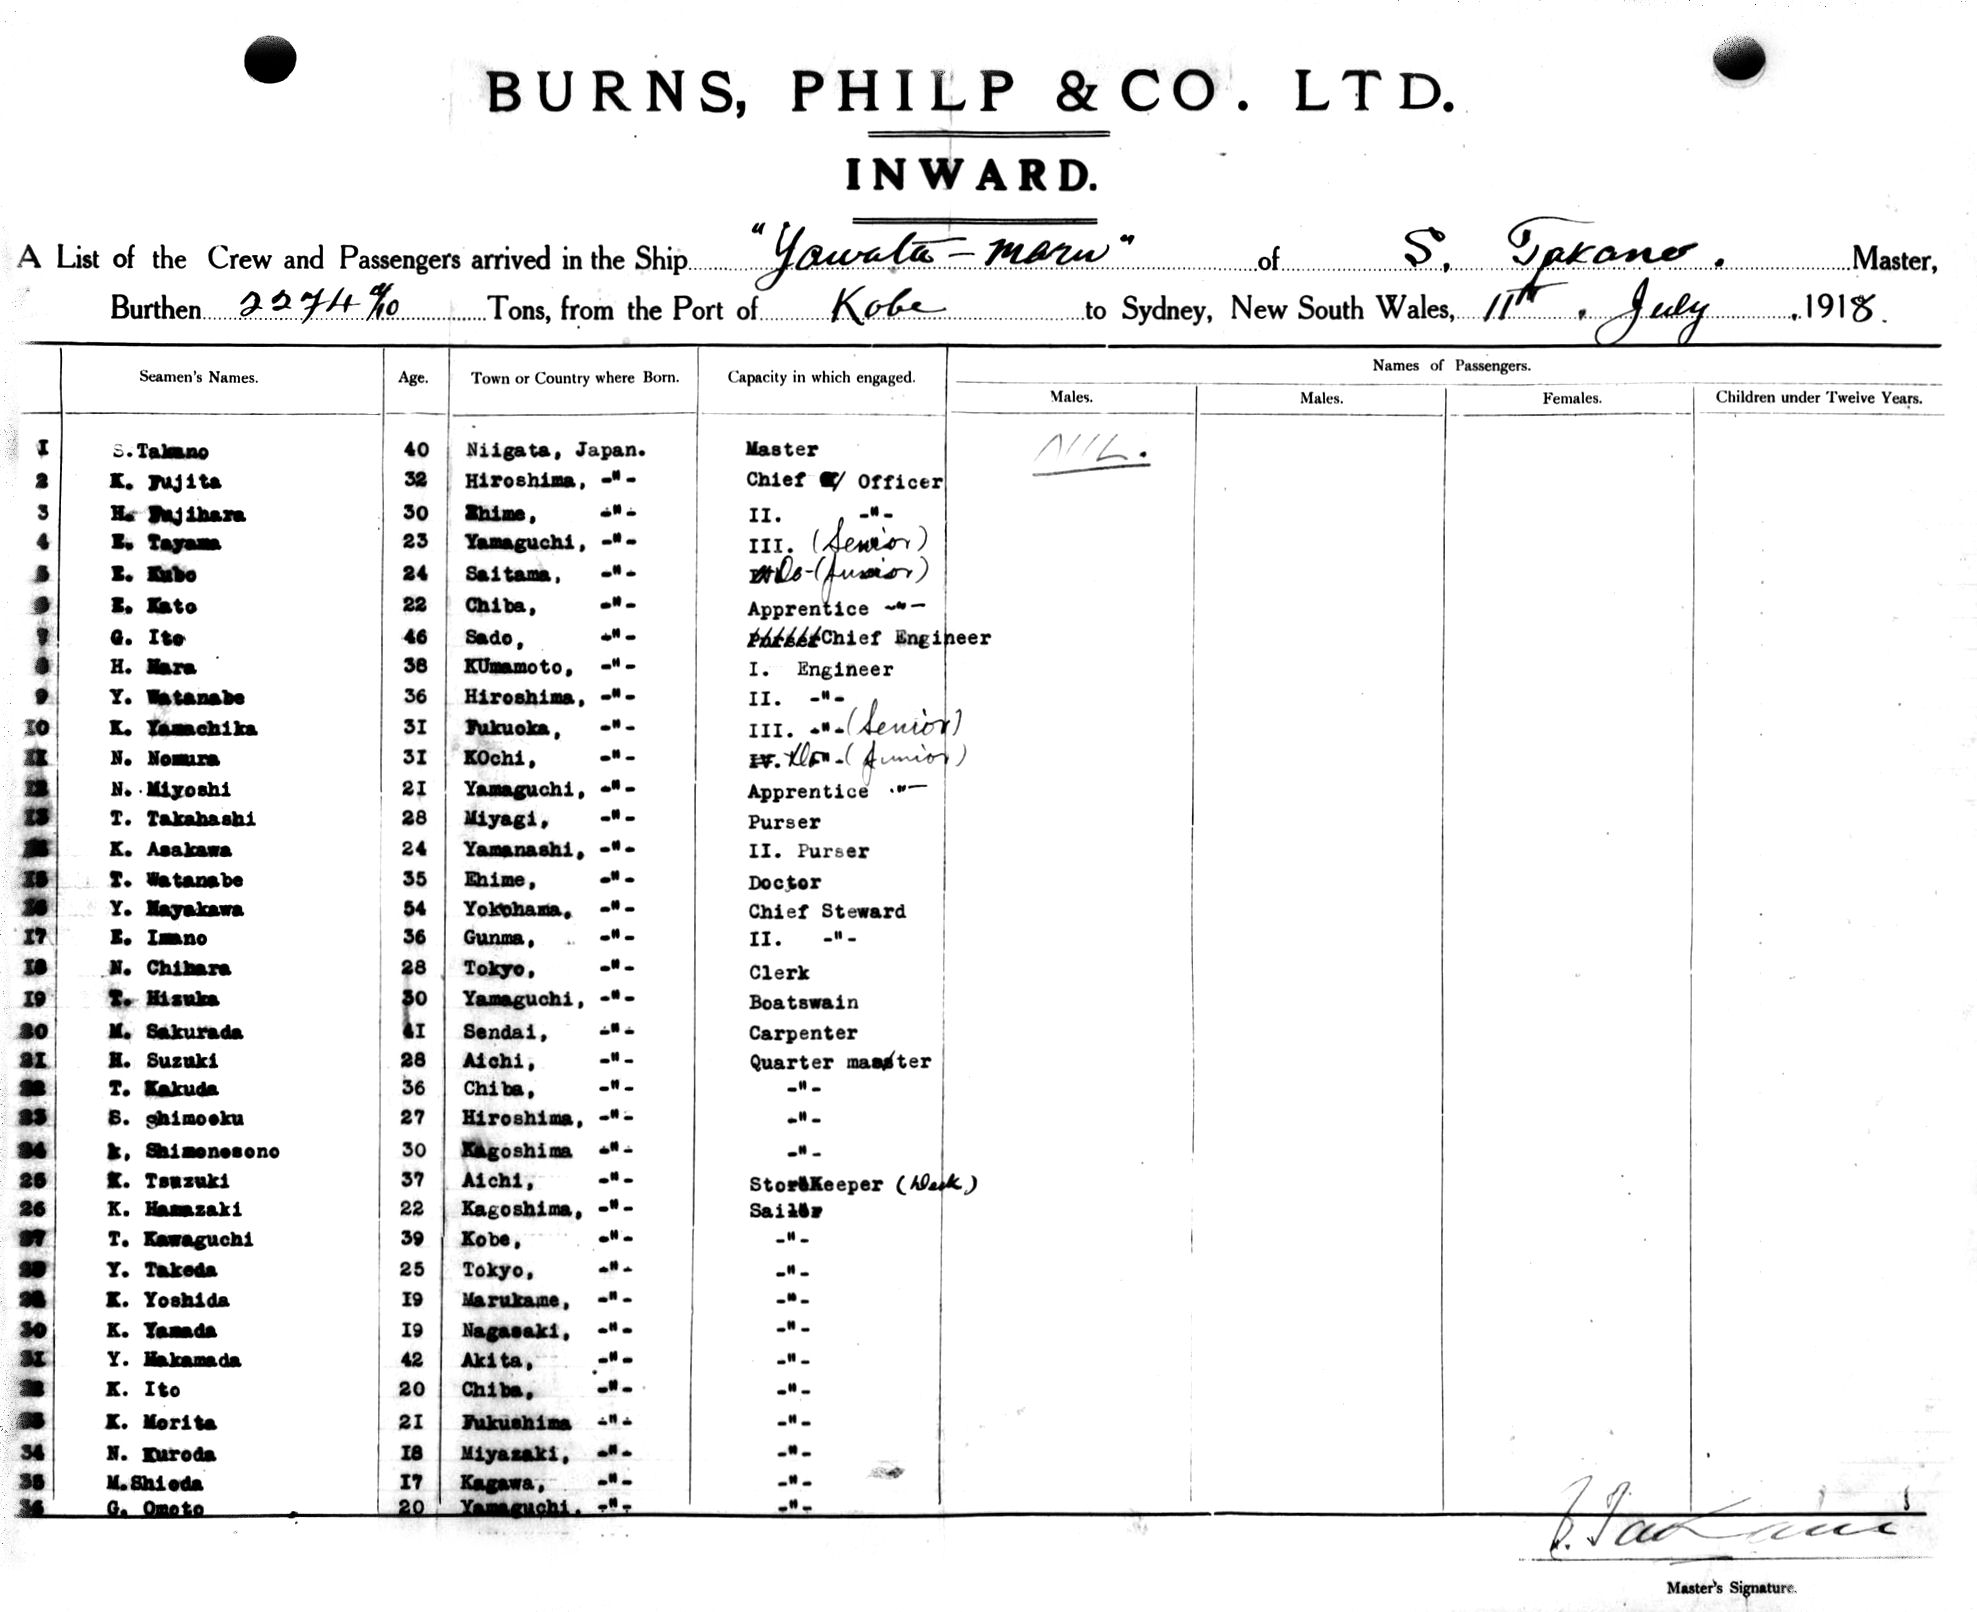 BURNS, PHILP & CO. LTD.
INWARD.
A List of the Crew and Passengers arrived in the Ship "Yawata-maru" of S. Takano. Master,
Burthen 2274 4/10 Tons, from the Port of Kobe to Sydney, New South Wales, 11th. July. 1918.
Seamen's Names. Age. Town or Country where Born. Capacity in which engaged. Names of Passengers.
Males. Males. Females. Children under Twelve Years.
I S.Takano 40 Niigata, Japan. Master NIL.
2 K. Fujita 32 Hiroshima, -"- Chief Officer
3 H. Fujihara 30 Ehime, -"- II. -"-
4 E. Tayama 23 Yamaguchi, -"- III. (Senior)
5 E. Kubo 24 Saitama, -"- Do-(Junior)
6 E. Kato 22 Chiba, -"- Apprentice -"-
7 G. Ito 46 Sado, -"- Purser Chief Engineer
8 H. Hara 38 KUmamoto, -"- I. Engineer
9 Y. Watanabe 36 Hiroshima, -"- II. -"-
IO K. Yamachika 3I Fukuoka, -"- III. -"- (Senior)
II N. Nomura 3I KOchi, -"- IV. Do -(Junior)
I2 N. Miyoshi 2I Yamaguchi, -"- Apprentice -"-
I3 T. Takahashi 28 Miyagi, -"- Purser
I4 K. Asakawa 24 Yamanashi, -"- II. Purser
I5 T. Watanabe 35 Ehime, -"- Doctor
I6 Y. Hayakawa 54 Yokohama, -"- Chief Steward
I7 E. Imano 36 Gunma, -"- II. -"-
I8 N. Chihara 28 Tokyo, -"- Clerk
I9 T. Hizuka 30 Yamaguchi, -"- Boatswain
20 M. Sakurada 4I Sendai, -"- Carpenter
2I H. Suzuki 28 Aichi, -"- Quarter master
22 T. Kakuda 36 Chiba, -"- -"-
23 S. Shimooku 27 Hiroshima, -"- -"-
24 k, Shimonosono 30 Kagoshima -"- -"-
25 K. Tsuzuki 37 Aichi, -"- StoreKeeper (Deck)
26 K. Hamazaki 22 Kagoshima, -"- Sailor
27 T. Kawaguchi 39 Kobe, -"- -"-
28 Y. Takeda 25 Tokyo, -"- -"-
29 K. Yoshida I9 Marukame, -"- -"-
30 K. Yamada I9 Nagasaki, -"- -"-
3I Y. Hakamada 42 Akita, -"- -"-
32 K. Ito 20 Chiba, -"- -"-
33 K. Morita 2I Fukushima -"- -"-
34 N. Kuroda I8 Miyazaki, -"- -"-
35 M.Shioda I7 Kagawa, -"- -"-
36 G. Omoto 20 Yamaguchi, -"- -"-
S. Takano
Master's Signature.